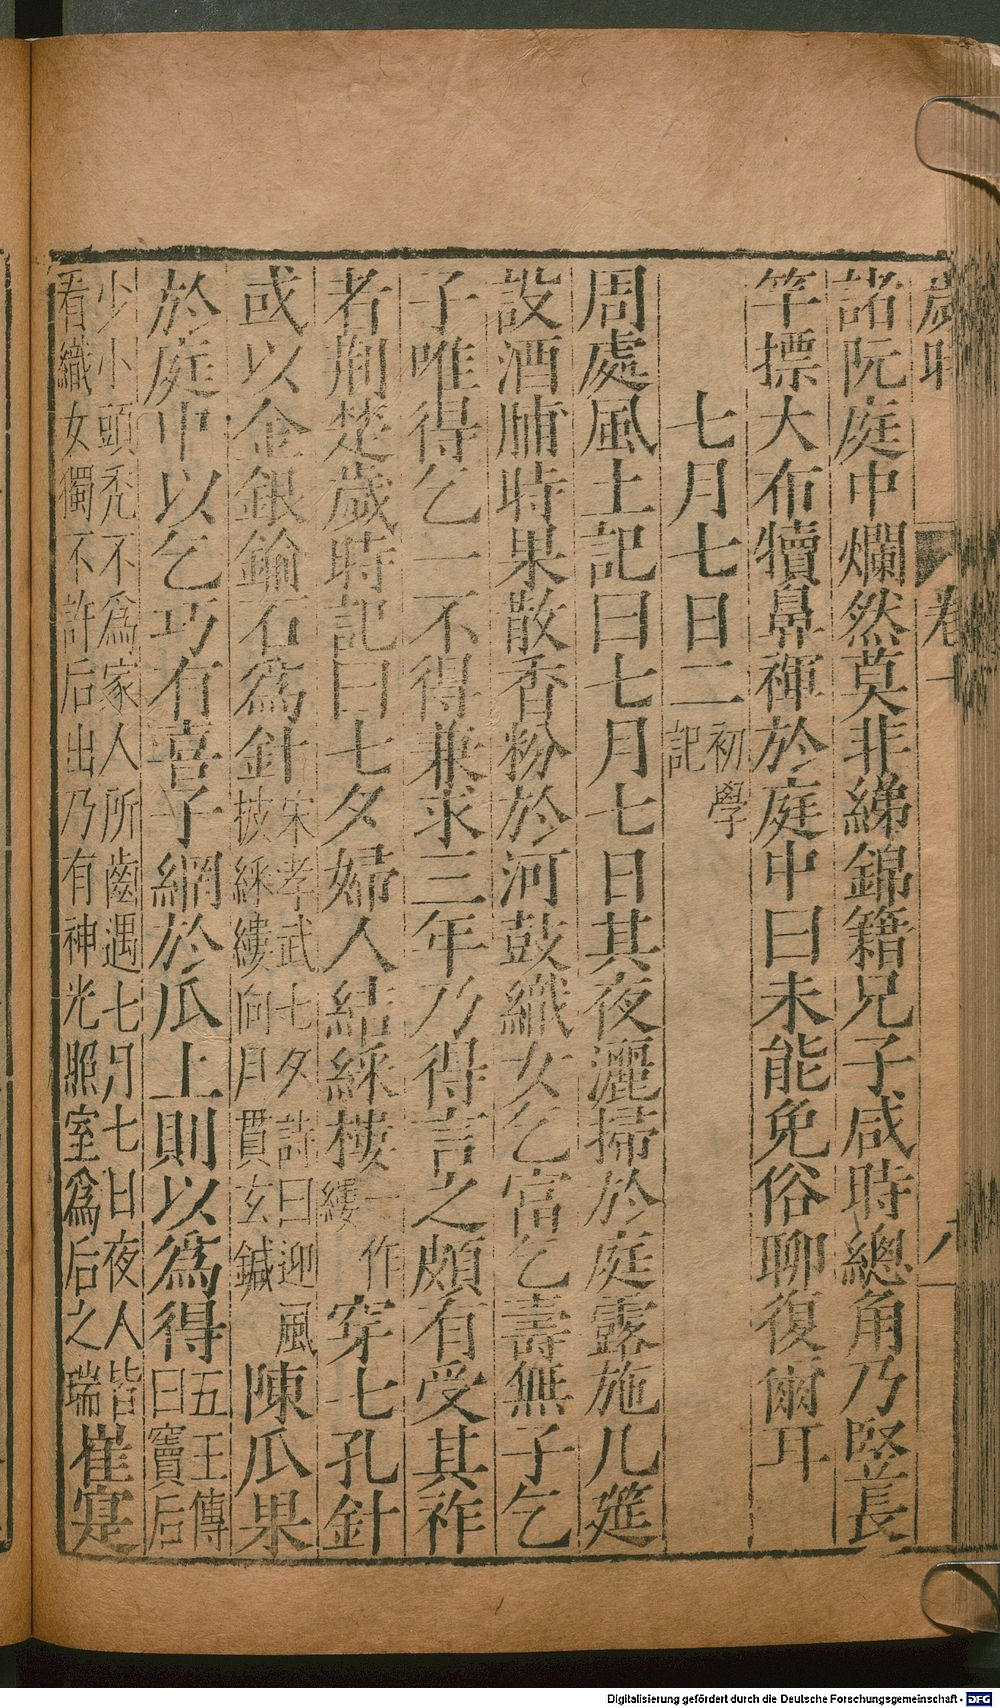 歲時
卷十
八
諸阮庭中爛然莫非綈錦籍兄子咸時總角乃竪長
竿摽大布犢鼻褌於庭中曰未能免俗聊復爾耳
七月七日二初學記
周處風土記曰七月七日其夜灑掃於庭露施几筵
設酒脯時果散香粉於河鼓織女乞富乞壽無子乞
子唯得乞一不得兼求三年乃得言之頗有受其祚
者荆楚歲時記曰七夕婦人結綵樓一作縷穿七孔針
或以金銀鍮石爲針宋孝武七夕詩曰迎風披綵縷向月貫玄鍼陳瓜果
於庭中以乞巧有喜子網於瓜上則以爲得五王傳曰竇后
少小頭禿不爲家人所齒遇七月七日夜人皆看織女獨不許后出乃有神光照室爲后之瑞崔寔
Digitalisierung gefördert durch die Deutsche Forschungsgemeinschaft - DFG